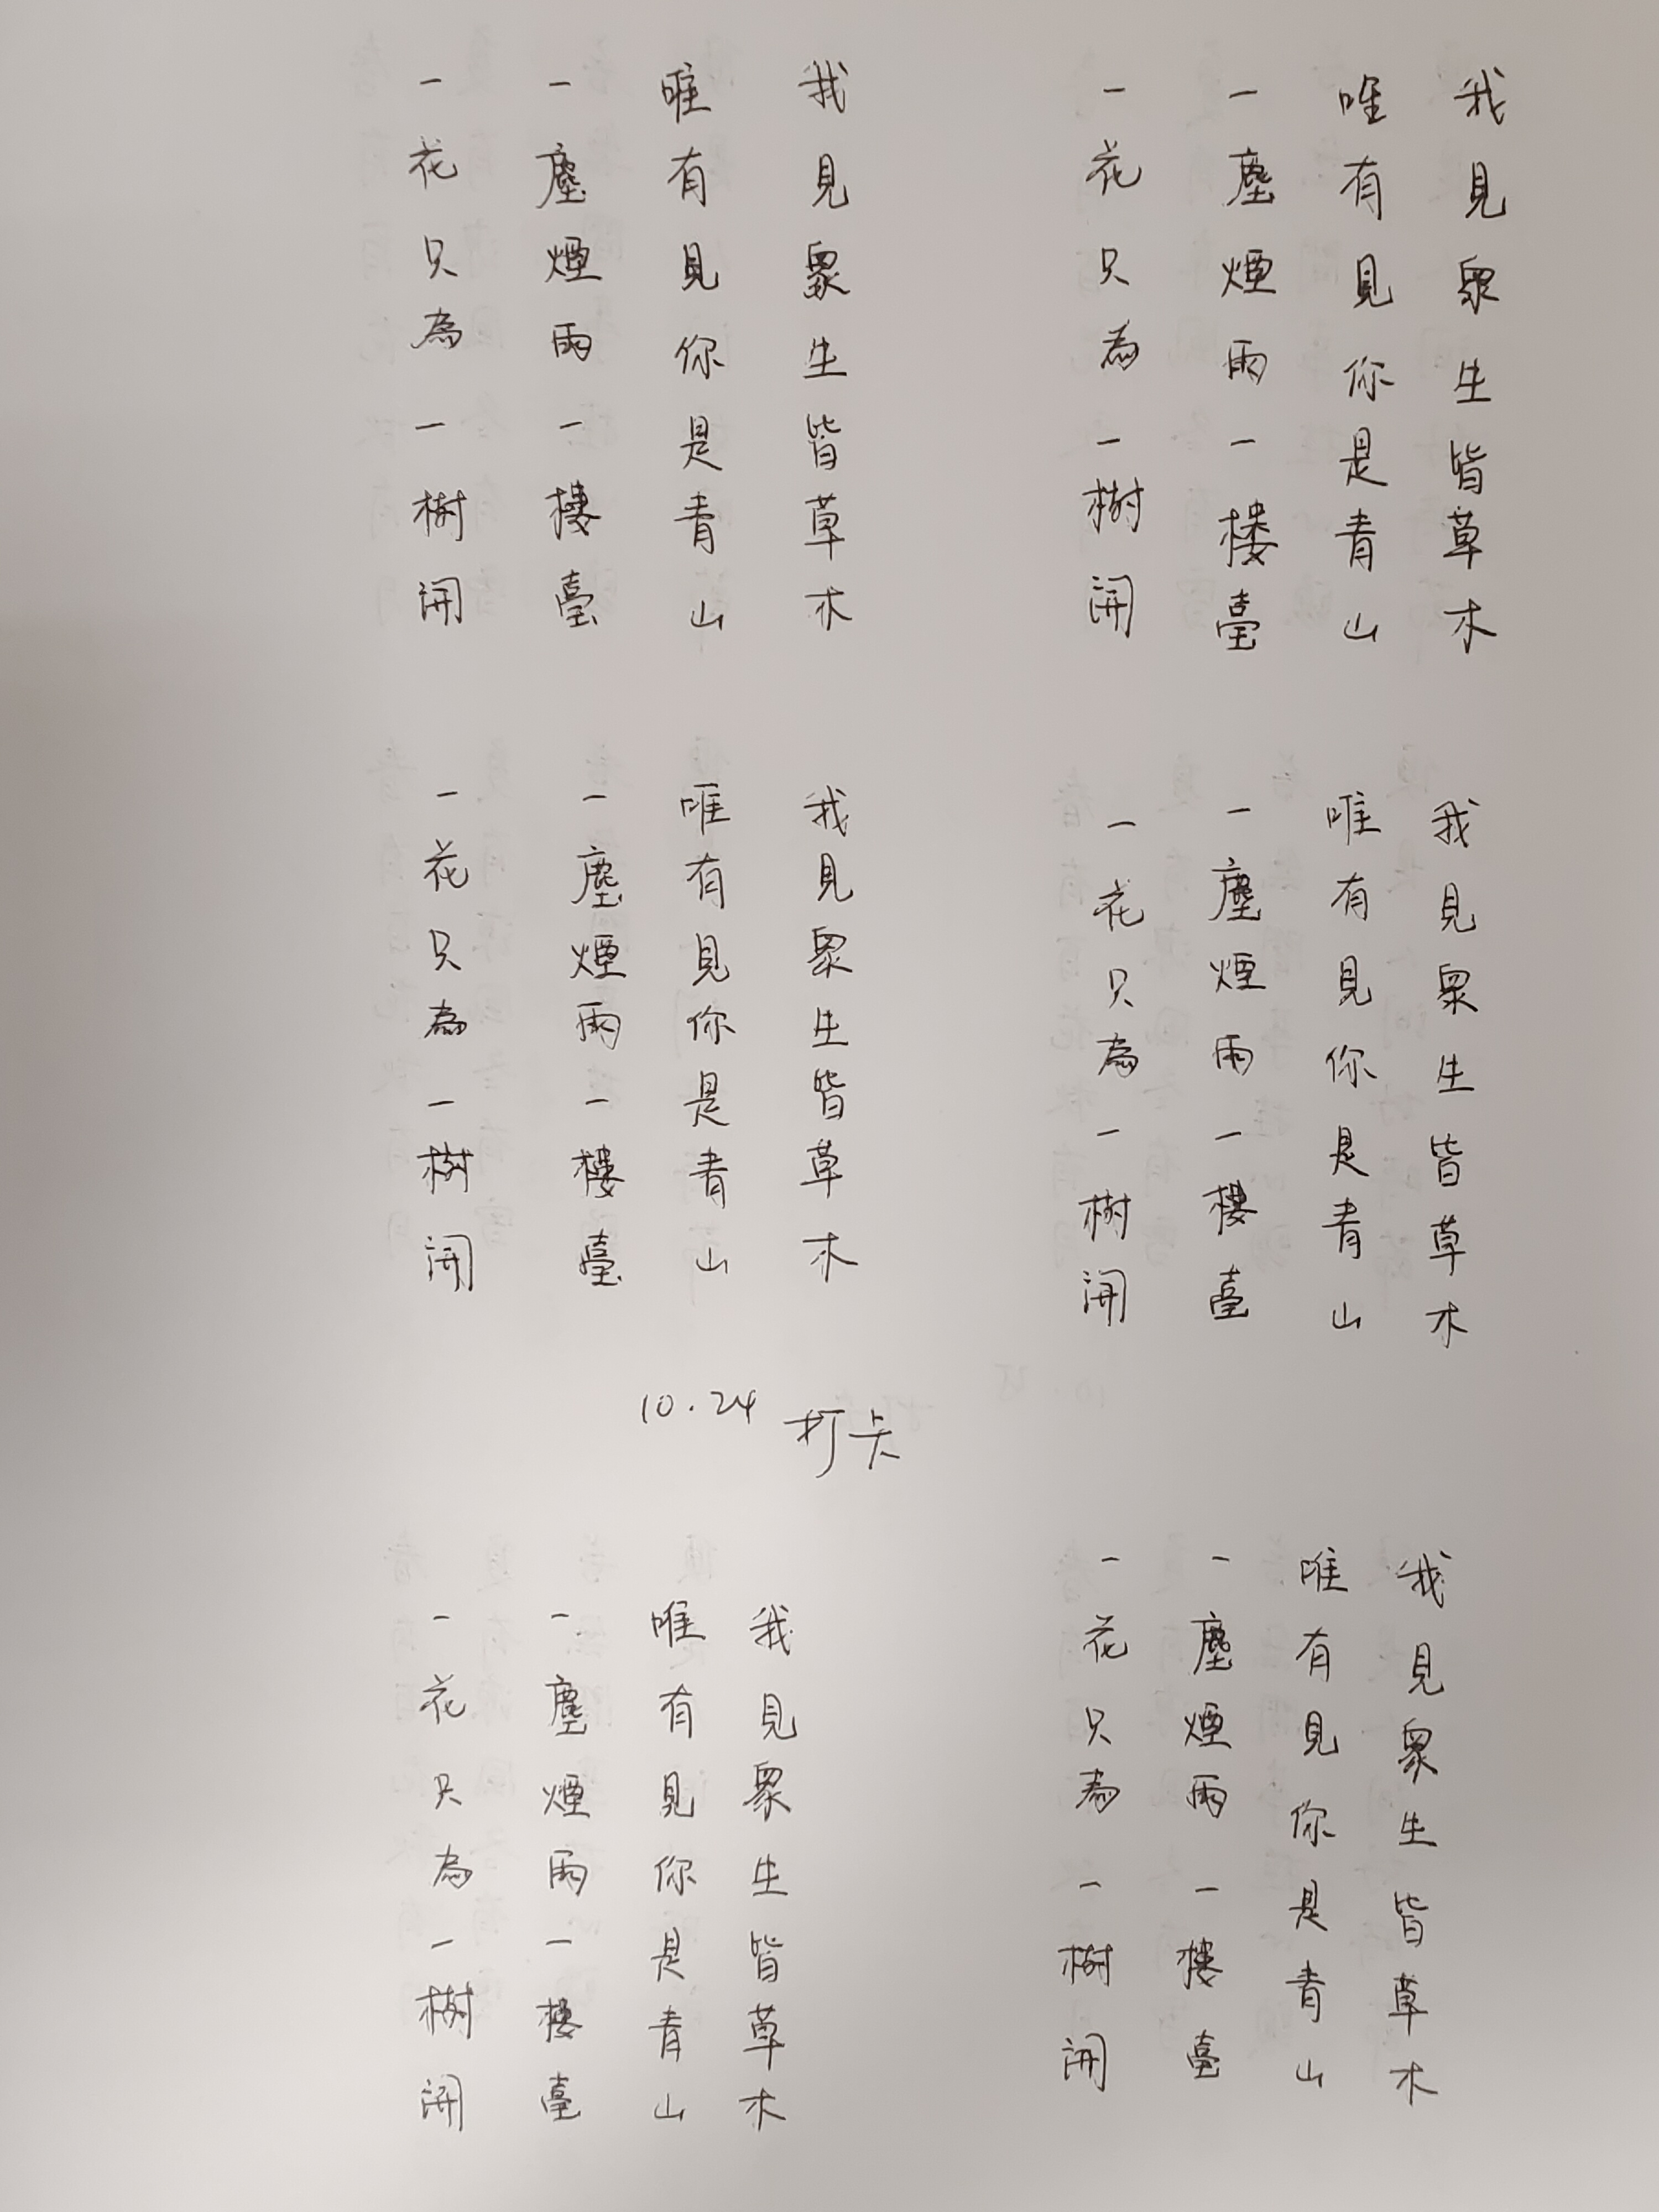 我見眾生皆草木
唯有見你是青山
一塵煙雨一樓臺
一花只為一樹開
我見眾生皆草木
唯有見你是青山
一塵煙雨一樓臺
一花只為一樹開
我見眾生皆草木
唯有見你是青山
一塵煙雨一樓臺
一花只為一樹開
我見眾生皆草木
唯有見你是青山
一塵煙雨一樓臺
一花只為一樹開
10.24 打卡
我見眾生皆草木
唯有見你是青山
一塵煙雨一樓臺
一花只為一樹開
我見眾生皆草木
唯有見你是青山
一塵煙雨一樓臺
一花只為一樹開